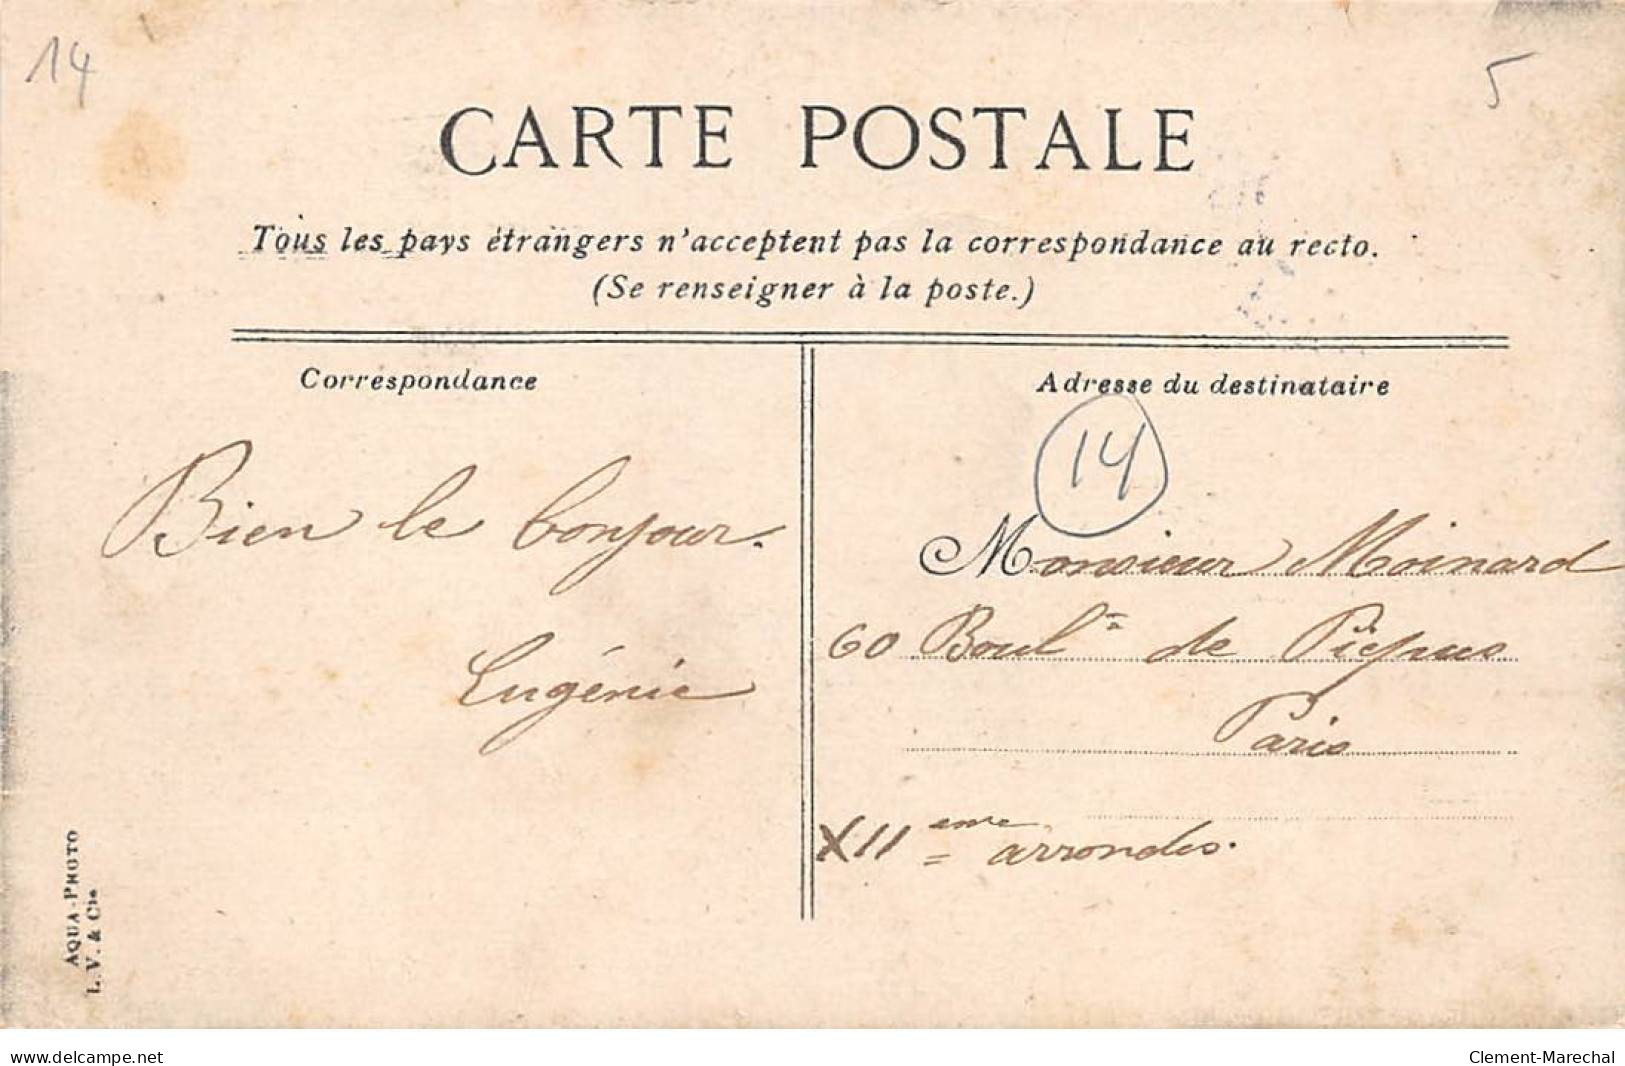 14
5
CARTE POSTALE
Tous les pays étrangers n'acceptent pas la correspondance au recto.
(Se renseigner à la poste.)
Correspondance
Adresse du destinataire
14
Bien le bonjour.
Eugénie
Monsieur Moinard
60 Boul^d de Picpus
Paris
XII^eme arrondis.
AQUA-PHOTO
L. V. & Cie
www.delcampe.net
Clement-Marechal